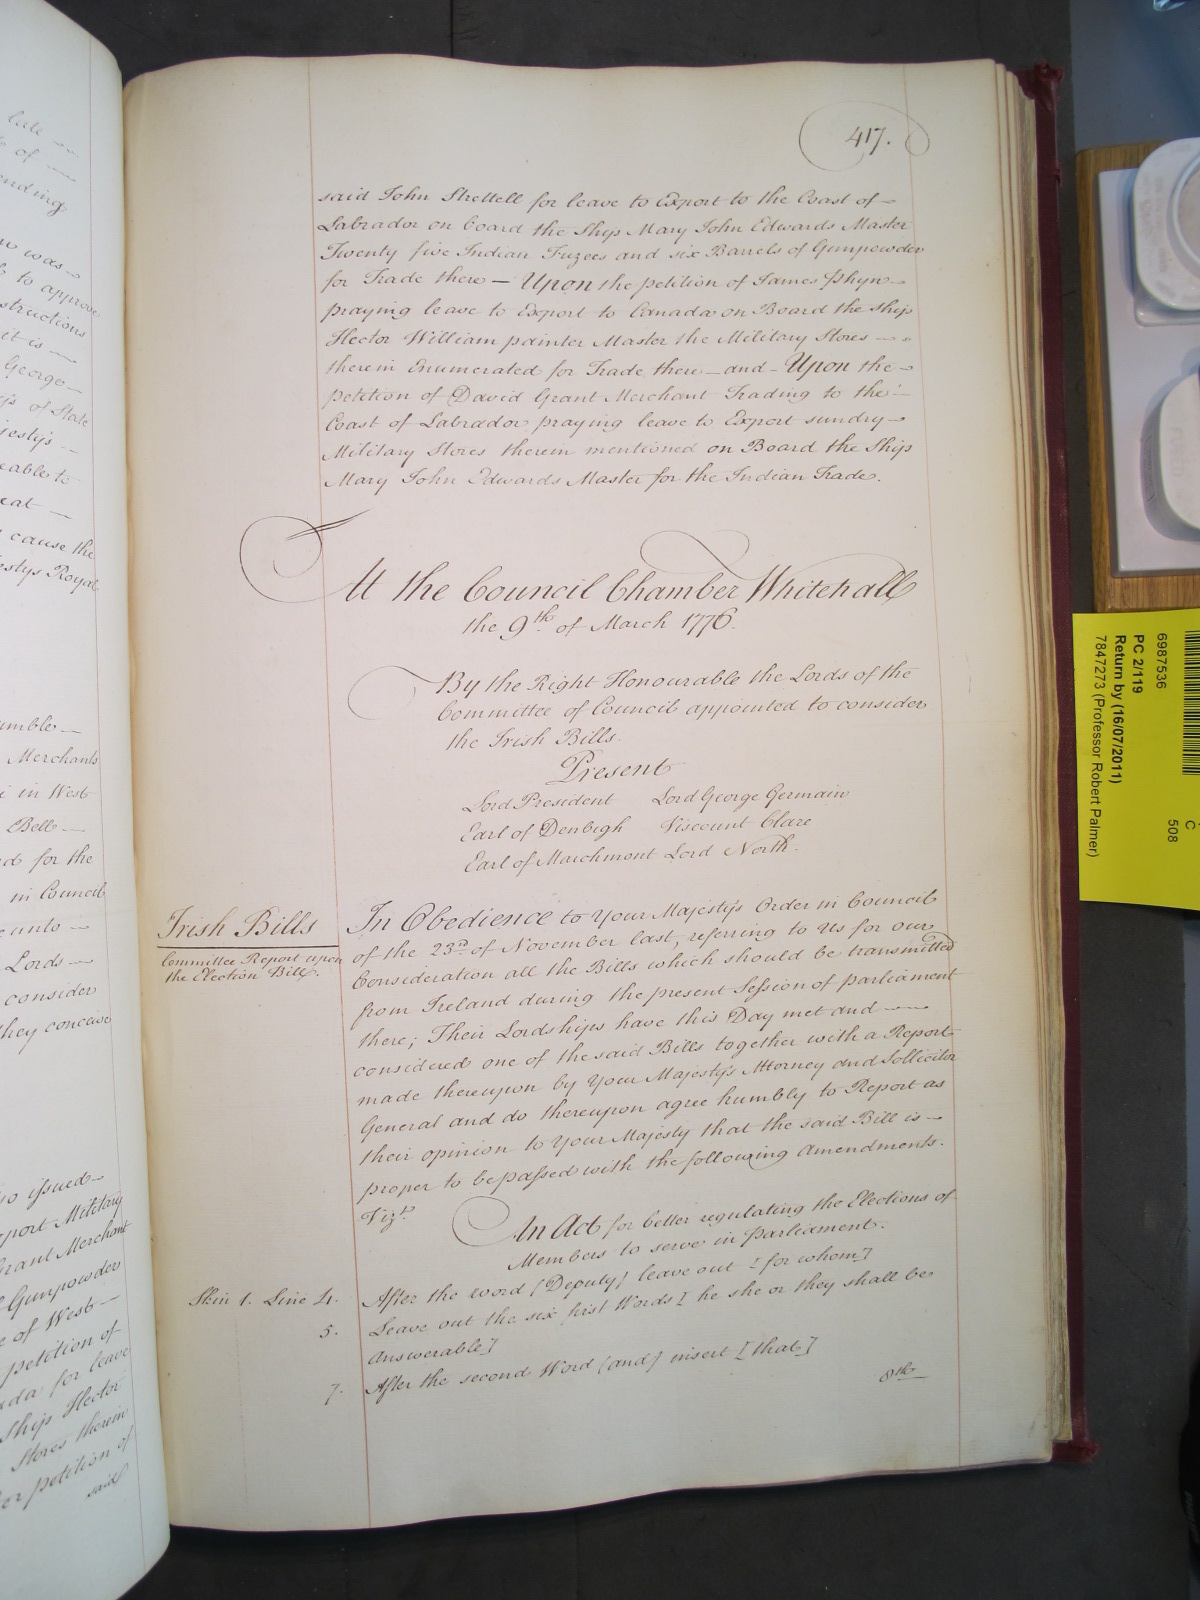 late
of
ending
was
to approve
structions
it is
George
of State
jesty's
eable to
eat
cause the
estys Royal
umble
Merchants
in West
Bell
ed for the
in Council
unto
Lords
consider
they conceive
so issued
xport Military
Grant Merchant
Gunpowder
of West
petition of
ada for leave
Ship Hector
Stores therein
petition of
said
417.
said John Strettell for leave to Export to the Coast of
Labrador on board the Ship Mary John Edwards Master
Twenty five Indian Fuzees and six Barrels of Gunpowder
for Trade there — Upon the petition of James Phyn
praying leave to Export to Canada on Board the Ship
Hector William painter Master the Military Stores
therein Enumerated for Trade there — and — Upon the
petition of David Grant Merchant Trading to the
Coast of Labrador praying leave to Export sundry
Military Stores therein mentioned on Board the Ship
Mary John Edwards Master for the Indian Trade.
At the Council Chamber Whitehall
the 9th of March 1776.
By the Right Honourable the Lords of the
Committee of Council appointed to consider
the Irish Bills.
Present
Lord President Lord George Germain
Earl of Denbigh Viscount Clare
Earl of Marchmont Lord North.
Irish Bills
Committee Report upon
the Election Bill.
In Obedience to Your Majesty's Order in Council
of the 23rd of November last, referring to Us for our
Consideration all the Bills which should be transmitted
from Ireland during the present Session of parliament
there; Their Lordships have this Day met and
considered one of the said Bills together with a Report
made thereupon by Your Majesty's Attorney and Sollicitor
General and do thereupon agree humbly to Report as
their opinion to Your Majesty that the said Bill is
proper to be passed with the following Amendments.
Vizt.
An Act for better regulating the Elections of
Members to serve in Parliament.
Skin 1. Line 4. After the word [Deputy] leave out [for whom]
5. Leave out the six first Words [he she or they shall be
answerable]
7. After the second Word [and] insert [that]
8th
6987536
PC 2/119
Return by (16/07/2011)
7847273 (Professor Robert Palmer)
C
508